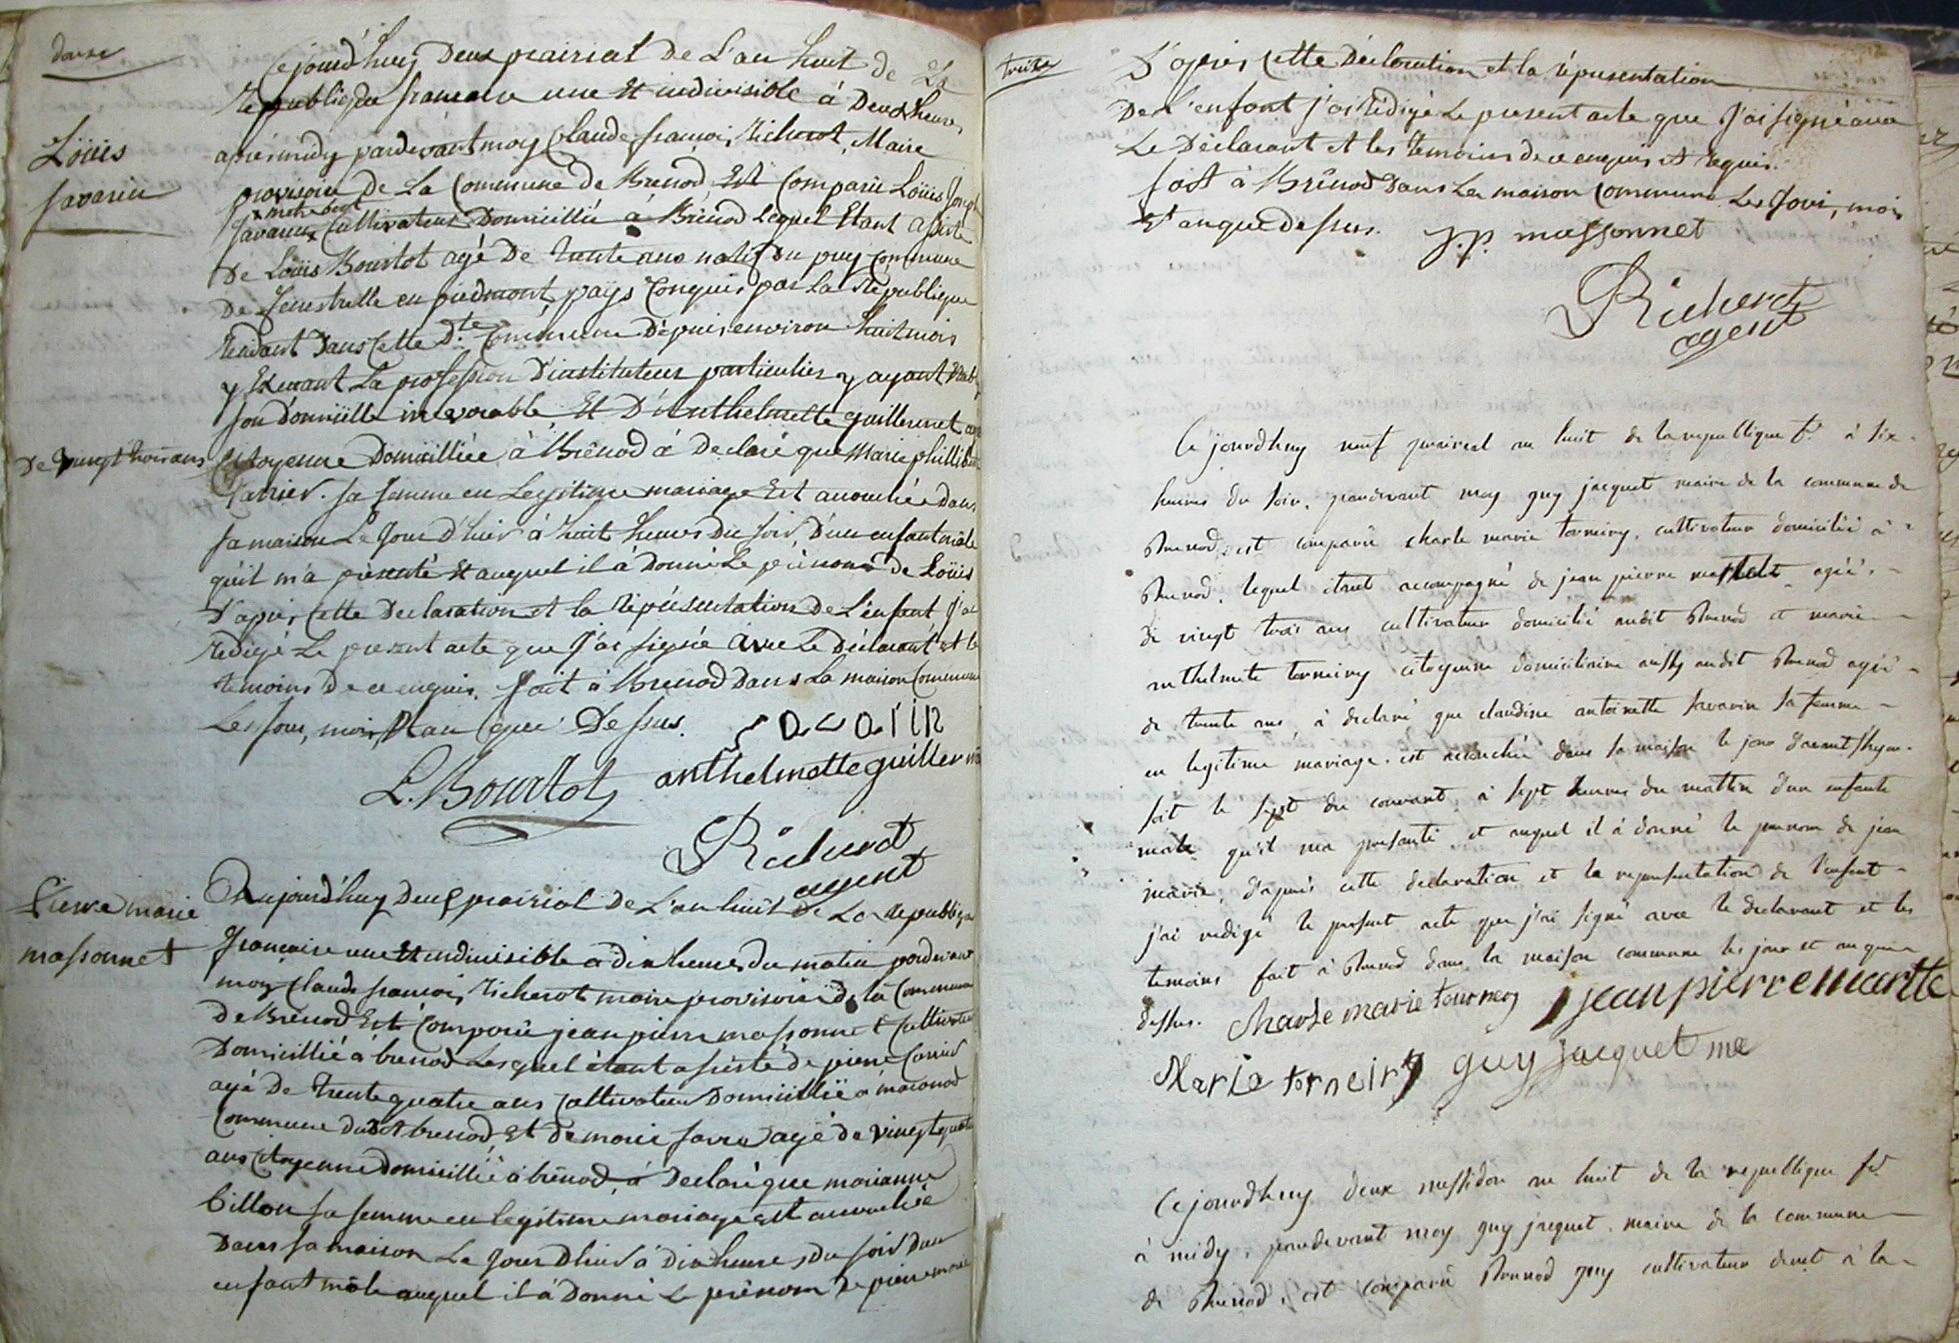 douze
Cejourd'huy deux prairial de L'an huit de La
Republique francaise une et indivisible à Deux heures
après midy pardevant moy Claude françois Richerot, Maire
Loüis
Savarin
provisoire de La Commune de Brenod Est Comparü Loüis Joseph
Savarin Cultivateur Domicillié à Brénod Lequel Etant assisté
De Loüis Bourlot agé De trente ans natif Du puy commune
De fenestrelle en piedmont, pays Conquis par La République
Residant Dans Cette D.te Commune Depuis environ huit mois
y Exercant La profession D'instituteur particulier y ayant
son domicille irrevocable, Et D'Anthelmette guillermet
De vingt trois ans
Citoyenne Domicilliée à Brénod à Declaré que Marie phillib
Carrier sa femme en Legitime mariage Est accouchée Dans
sa maison Le Jour D'hier à huit heures Du soir, D'un enfant mâle
qu'il m'a présenté Et auquel il à Donné Le prénom de Loüis
D'après Cette Declaration et la représentation De L'enfant J'ai
redigé Le present acte que J'ai signé avec Le Déclarant et les
temoins De ce enquis. fait à Brénod Dans La maison Commune
Les Jour, mois Et an que Dessus. savarin
L. Bourlot anthelmette guillermet
Richerot
agent
Pierre marie
massonnet
Aujourd'huy Deux prairial de L'an huit de La republique
francaise une Et indivisible à dix heures du matin pardevant
moy Claude francois Richerot maire provisoire de la Commune
De Brénod Est Comparü jean pierre massonnet Cultivateur
Domicillié à brenod Lesquel étant assisté de pierre Carrier
agé De trente quatre ans Cultivateur Domicillié à maconod
Commune dudit brenod, Et de marie savarin agé de vingt quatre
ans Citoyenne Domicillié à brénod, à Declaré que marianne
billon sa femme en legitime mariage est accouchée
Dans sa maison Le Jour D'hier à Dix heures Du soir D'un
enfant mâle auquel il à Donné Le prénom De pierre marie
treize
D'après Cette Déclaration et la représentation
De L'enfant j'ai rédigé Le present acte que J'ai signé avec
Le Déclarant et les temoins de ce enquis et requis.
fait à Brénod Dans La maison Commune Les Jour, mois
Et an que dessus. J.p. massonnet
Richerot
agent
Ce jourdhuy neuf prairial an huit de la republique f.se à six
heures du soir, pardevant moy guy jacquet maire de la commune de
Brenod, est comparü charle marie torneiry, cultivateur domicilié à
Brenod, lequel étant accompagné de jean pierre martelet agée
de vingt trois ans cultivateur domicilié audit Brenod et marie
anthelmete torneiry citoyenne domiciliaire aussy audit Brenod agée
de trente ans, à déclaré que claudine antoinette savarin sa femme
en legitime mariage, est accouchée dans sa maison le jour d'avant hyer
soit le sept du courant, à sept heures du mattin d'un enfant
male qu'il ma presenté, et auquel il à donné le prenom de jean
marie, d'après cette declaration et la representation de l'enfant
j'ai redigé le present acte que j'ai signé avec le declarant et les
temoins fait à Brenod dans la maison commune les jour et an que
dessus. charle marie tournery jean pierre martte
Maria torneiry guy jacquet me
Cejourdhuy deux messidor an huit de la republique f.se
à midy, pardevant moy guy jacquet, maire de la commune
de Brenod, est comparü Brunod guy cultivateur demt à la